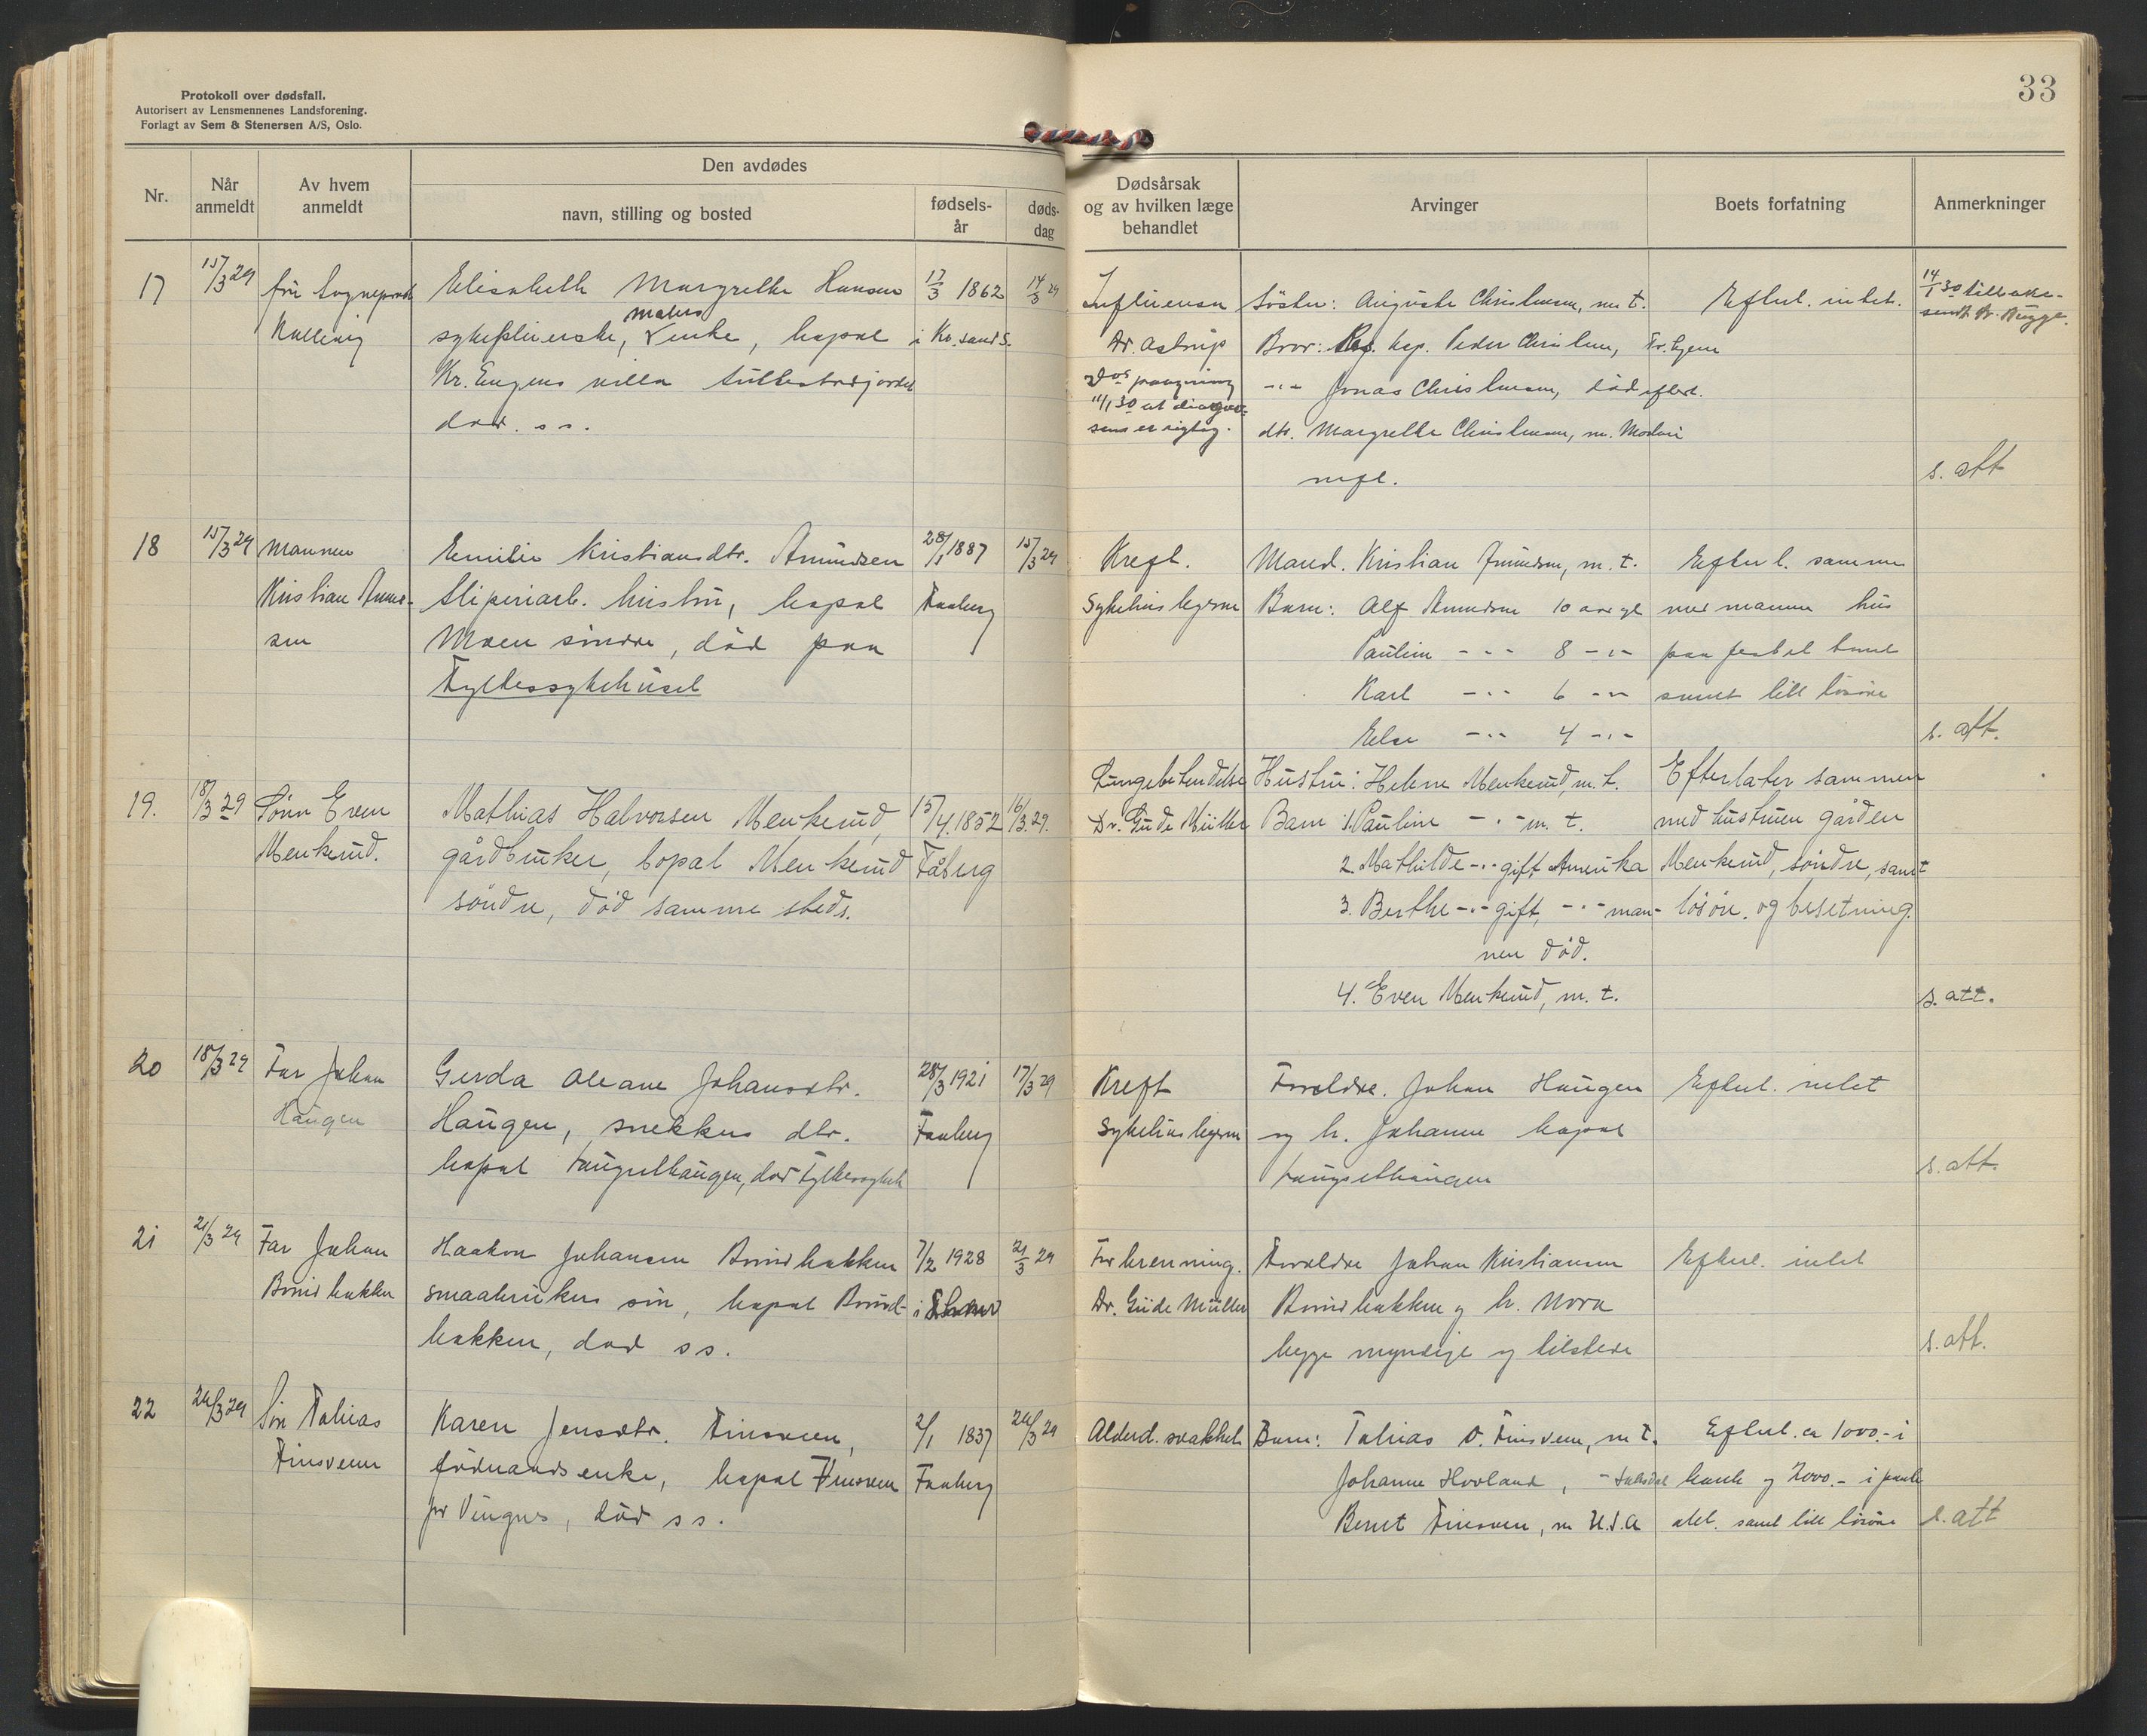 Protokoll over dødsfall.
Autorisert av Lensmennenes Landsforening.
Forlagt av Sem & Stenersen A/S, Oslo.
33
Nr.
Når anmeldt
Av hvem anmeldt
Den avdødes
navn, stilling og bosted
fødsels-år
døds-dag
Dødsårsak og av hvilken læge behandlet
Arvinger
Boets forfatning
Anmerkninger
17
15/3 29
fru Sogneprest
Elisabeth Margrethe Hansen
malers
sykepleierske, enke, bopæl
Kr. Engens villa
død. ss.
17/3 1862
i Kr.sand S.
14/3 29
Influensa
Dr. Astrup
11/1 30 at diagno-
sens er rigtig.
Søster: Auguste Christensen, m. t.
Bror: Res. kap. Peder Christensen,
-"- Jonas Christensen, død efterl.
dtr. Margrethe Christensen,
mfl.
Efterl. intet.
14/1 30 tilbake-
sendt Dr. Bugge.
s. att
18
15/3 29
Mannen
Kristian Amund-
sen
Emilie Kristiansdtr. Amundsen
sliperiarb. hustru, bopæl
Moen søndre, død paa
Fylkessykehuset
28/1 1887
Faaberg
15/3 29
Kreft.
Sykehuslegerne
Mand. Kristian Amundsen, m. t.
Barn: Alf Amundsen 10 aar gl
Pauline -"- 8 -"-
Karl -"- 6 -"-
Else -"- 4 -"-
Efterl. sammen
med mannen hus
paa festet tomt
samt litt løsøre
s. att.
19.
18/3 29
Sønn Even
Menkerud.
Mathias Halvorsen Menkerud,
gårdbruker, bopæl Menkerud
søndre, død samme steds.
15/4. 1852
Fåberg
16/3. 29.
Lungebetendelse
Dr. Gude Müller
Hustru: Helene Menkerud, m. t.
Barn 1. Pauline -"- m. t.
2. Mathilde -"- gift Amerika
3. Berthe -"- gift, -"- man-
nen død.
4. Even Menkerud, m. t.
Efterlater sammen
med hustruen gården
Menkerud, søndre, samt
løsøre. og besetning.
s. att.
20
18/3 29
Far Johan
Haugen
Gerda Oleane Johansdtr.
Haugen, snekkers dtr.
bopæl
død Fylkessykeh
28/3 1921
Faaberg
17/3 29
Kreft
Sykehuslegerne
Foreldre. Johan Haugen
og h. Johanne bopæl
Efterl. intet
s. att.
21
21/3 29
Far Johan
Bruridbakken
Haakon Johansen
smaabrukers søn, bopæl
bakken, død ss.
7/2 1928
21/3 29
Forbrenning.
Dr. Gude Müller
Foreldre Johan Kristiansen
og h. Nora
begge myndige og tilstede
Efterl. intet
s. att.
22
24/3 29
Søn Tobias
Finsveen
Karen Jensdtr. Finsveen,
føderaadsenke, bopæl Finsveen
pr Vingnes, død ss.
2/1 1837
Faaberg
24/3 29
Alderd. svakhet
Barn: Tobias O. Finsveen, m t.
Johanne Hovland,
Bernt Finsveen, m U.S.A
Efterl. ca 1000.- i
bank og 2000.- i pante
obl. samt litt løsøre
s. att